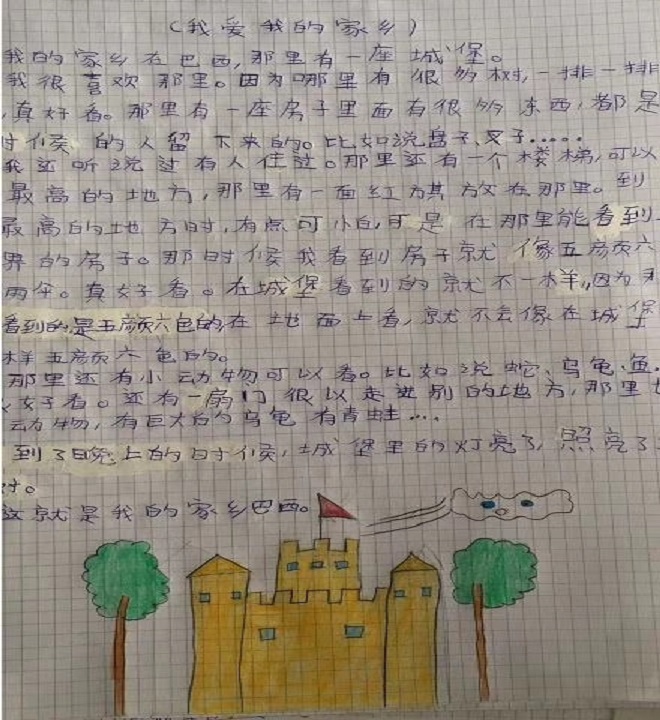 （我爱我的家乡）
我的家乡在巴西,那里有一座城堡。
我很喜欢那里。因为哪里有很多树,一排一排
,真好看。那里有一座房子里面有很多东西,都是
时候的人留下来的。比如说盘子、叉子.....
我还听说过有人住过。那里还有一个楼梯,可以
最高的地方,那里有一面红旗放在那里。到
最高的地方时,有点可怕,可是在那里能看到
界的房子。那时候我看到房子就像五颜六
两年。真好看。在城堡看到的就不一样,因为
看到的是五颜六色的在地面上看,就不会像在城堡
样五颜六色的。
那里还有小动物可以看。比如说蛇、乌龟、鱼.
好看。还有一扇门很以走进别的地方,那里
动物,有巨大的乌龟有青蛙....
到了晚上的时候,城堡里的灯亮了,照亮了
这就是我的家乡巴西。